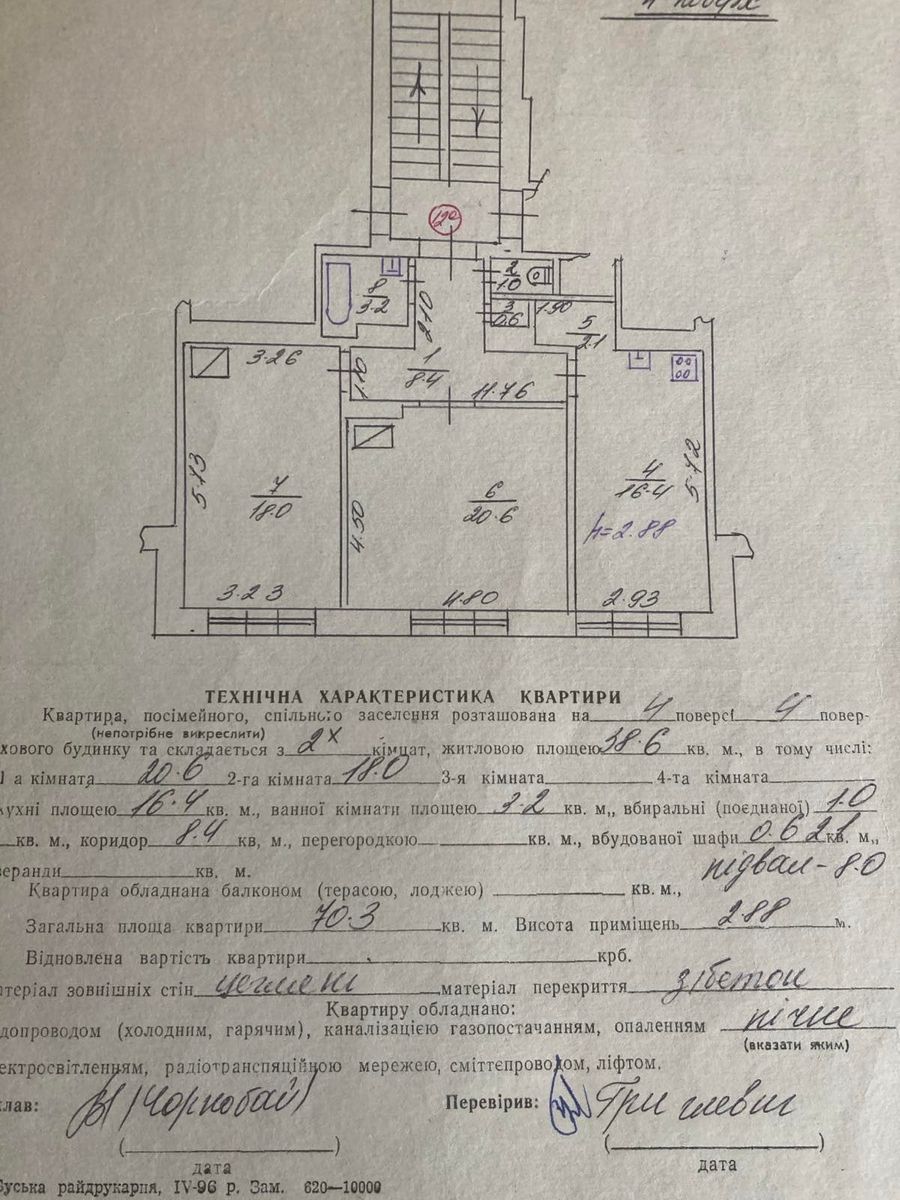 4 поверх
12a
8
3.2
2
1.0
3
0.6
1.90
5
2.1
2.10
3.26
1.10
1
8.4
4.76
5.43
7
18.0
4.50
6
20.6
4
16.4
5.42
h=2.88
3.23
4.80
2.93
ТЕХНІЧНА ХАРАКТЕРИСТИКА КВАРТИРИ
Квартира, посімейного, спільного заселення розташована на 4 поверсі 4 повер-
(непотрібне викреслити)
хового будинку та складається з 2х кімнат, житловою площею 38.6 кв. м., в тому числі:
а кімната 20.6 2-га кімната 18.0 3-я кімната 4-та кімната
ухні площею 16.4 кв. м., ванної кімнати площею 3.2 кв. м,, вбиральні (поєднаної) 1.0
кв. м., коридор 8.4 кв, м., перегородкою кв. м., вбудованої шафи 0.6 2.1 кв. м,,
еранди кв. м. підвал - 8.0
Квартира обладнана балконом (терасою, лоджею) кв. м.,
Загальна площа квартири 70.3 кв. м. Висота приміщень 2.88 м.
Відновлена вартість квартири крб.
теріал зовнішніх стін цегляні матеріал перекриття з/бетон
Квартиру обладнано:
допроводом (холодним, гарячим), каналізацією газопостачанням, опаленням пічне
(вказати яким)
ектросвітленням, радіотрансляційною мережею, сміттєпроводом, ліфтом.
лав: (Чорнобай) Перевірив:
дата дата
Буська райдрукарня, IV-96 р. Зам. 620—10000